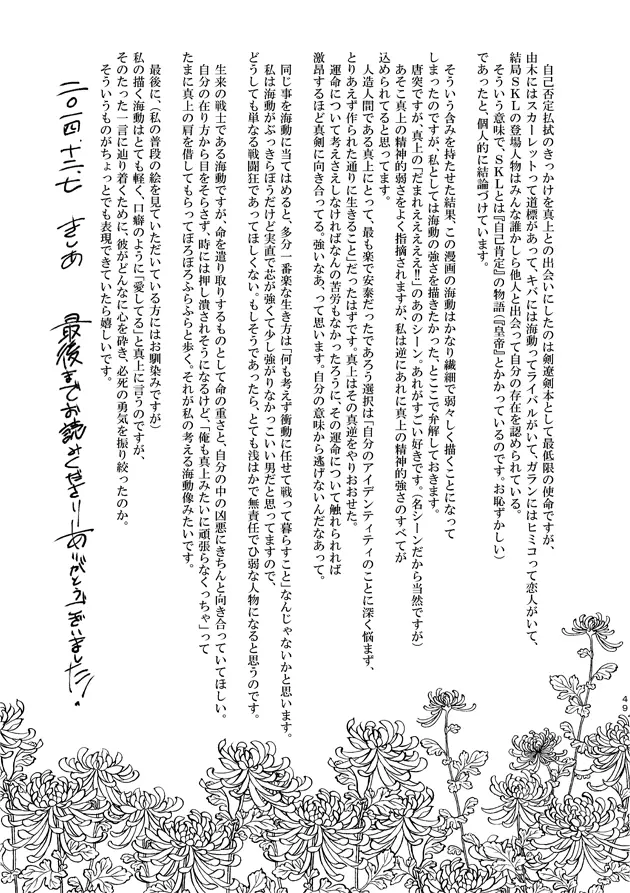 自己否定払拭のきっかけを真上との出会いにしたのは剣遼剣本として最低限の使命ですが、
由木にはスカーレットって道標があって、キバには海動ってライバルがいて、ガランにはヒミコって恋人がいて、
結局SKLの登場人物はみんな誰かしら他人と出会って自分の存在を認められている。
そういう意味で、SKLとは『自己肯定』の物語(『皇帝』とかかっているのです。お恥ずかしい)
であったと、個人的に結論づけています。
そういう含みを持たせた結果、この漫画の海動はかなり繊細で弱々しく描くことになって
しまったのですが、私としては海動の強さを描きたかった、とここで弁解しておきます。
唐突ですが、真上の「だまれえええええ!!」のあのシーン。あれがすごい好きです。(名シーンだから当然ですが)
あそこ真上の精神的弱さをよく指摘されますが、私は逆にあれに真上の精神的強さのすべてが
込められてると思ってます。
人造人間である真上にとって、最も楽で安泰だったであろう選択は「自分のアイデンティティのことに深く悩まず、
とりあえず作られた通りに生きること」だったはずです。真上はその真逆をやりおおせた。
運命について考えさえしなければなんの苦労もなかったろうに、その運命について触れられれば
激昂するほど真剣に向き合ってる。強いなあ、って思います。自分の意味から逃げないんだなあって。
同じ事を海動に当てはめると、多分一番楽な生き方は「何も考えず衝動に任せて戦って暮らすこと」なんじゃないかと思います。
私は海動がぶっきらぼうだけど実直で芯が強くて少し強がりなかっこいい男だと思ってますので、
どうしても単なる戦闘狂であってほしくない。もしそうであったら、とても浅はかで無責任でひ弱な人物になると思うのです。
生来の戦士である海動ですが、命を遣り取りするものとして命の重さと、自分の中の凶悪にきちんと向き合っていてほしい。
自分の在り方から目をそらさず、時には押し潰されそうになるけど、「俺も真上みたいに頑張らなくっちゃ」って
たまに真上の肩を借してもらってぼろぼろふらふらと歩く。それが私の考える海動像みたいです。
最後に、(私の普段の絵を見ていただいている方にはお馴染みですが)
私の描く海動はとても軽く、口癖のように「愛してる」と真上に言うのですが、
そのたった一言に辿り着くために、彼がどんなに心を砕き、必死の勇気を振り絞ったのか。
そういうものがちょっとでも表現できていたら嬉しいです。
二〇一四、十二、七 きしめ
最後までお読みくださりありがとうございました!
49